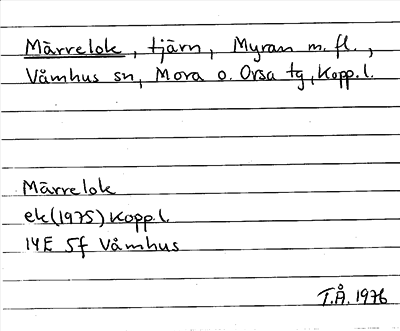 Märrelok, tjärn, Myran m. fl.,
Våmhus sn, Mora o. Orsa tg, Kopp.l.
Märrelok
ek(1975) Kopp.l.
14E 5f Våmhus
T.Å. 1976